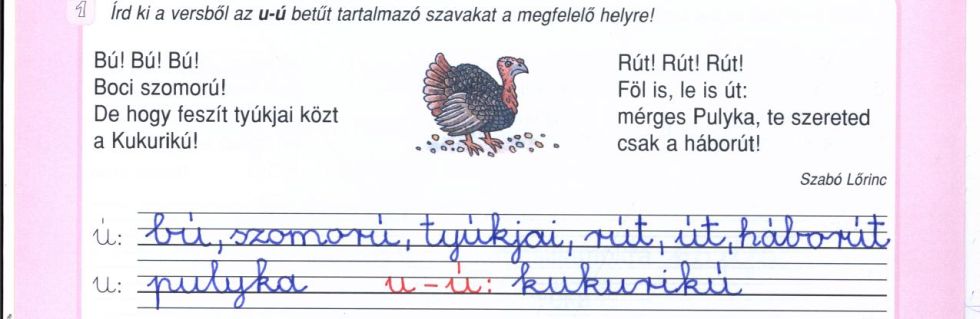 1 Írd ki a versből az u-ú betűt tartalmazó szavakat a megfelelő helyre!
Bú! Bú! Bú!
Boci szomorú!
De hogy feszít tyúkjai közt
a Kukurikú!
Rút! Rút! Rút!
Föl is, le is út:
mérges Pulyka, te szereted
csak a háborút!
Szabó Lőrinc
ú: bú, szomorú, tyúkjai, rút, út, háborút
u: pulyka u-ú: kukurikú